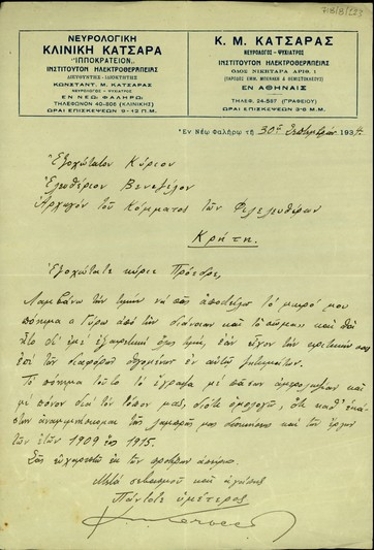 718/8/133
ΝΕΥΡΟΛΟΓΙΚΗ
ΚΛΙΝΙΚΗ ΚΑΤΣΑΡΑ
"ΙΠΠΟΚΡΑΤΕΙΟΝ"
ΙΝΣΤΙΤΟΥΤΟΝ ΗΛΕΚΤΡΟΘΕΡΑΠΕΙΑΣ
ΔΙΕΥΘΥΝΤΗΣ - ΙΔΙΟΚΤΗΤΗΣ
ΚΩΝΣΤΑΝΤ. Μ. ΚΑΤΣΑΡΑΣ
ΝΕΥΡΟΛΟΓΟΣ - ΨΥΧΙΑΤΡΟΣ
ΕΝ ΝΕΩ ΦΑΛΗΡΩ
ΤΗΛΕΦΩΝΟΝ 40-806 (ΚΛΙΝΙΚΗΣ)
ΩΡΑΙ ΕΠΙΣΚΕΨΕΩΝ 9-12 Π.Μ.
Κ. Μ. ΚΑΤΣΑΡΑΣ
ΝΕΥΡΟΛΟΓΟΣ - ΨΥΧΙΑΤΡΟΣ
ΙΝΣΤΙΤΟΥΤΟΝ ΗΛΕΚΤΡΟΘΕΡΑΠΕΙΑΣ
ΟΔΟΣ ΝΙΚΗΤΑΡΑ ΑΡΙΘ. 1
(ΠΑΡΟΔΟΣ ΕΜΜ. ΜΠΕΝΑΚΗ & ΘΕΜΙΣΤΟΚΛΕΟΥΣ)
ΕΝ ΑΘΗΝΑΙΣ
ΤΗΛΕΦ. 24-567 (ΓΡΑΦΕΙΟΥ)
ΩΡΑΙ ΕΠΙΣΚΕΨΕΩΝ 3-6 Μ.Μ.
Ἐν Νέῳ Φαλήρῳ τῇ 30ῃ Σεπτεμβρίου 1934
Ἐξοχώτατον Κύριον
Ἐλευθέριον Βενιζέλον
Ἀρχηγὸν τοῦ Κόμματος τῶν Φιλελευθέρων
Κρήτη.
Ἐξοχώτατε κύριε Πρόεδρε,
Λαμβάνω τὴν τιμὴν νὰ σᾶς ἀποστείλω τὸ μικρό μου
πόνημα «Γύρω ἀπὸ τὴν διάνοιαν καὶ τὸ σῶμα» καὶ θὰ
ἦτο δι' ἐμὲ ἐξαιρετικὴ ὅλως τιμή, ἐὰν εἶχον τὴν κριτικήν σας
ἐπὶ τῶν διαφόρων θιγομένων ἐν αὐτῇ ζητημάτων.
Τὸ πόνημα τοῦτο τὸ ἔγραψα μὲ καὶ
μὲ πόνον διὰ τὸν τόπον μας, διότι ὁμολογῶ, ὅτι καθ' ἑκάστην
ἀναμιμνήσκομαι τῆς λαμπρᾶς μας διοικήσεως καὶ τῶν ἔργων
τῶν ἐτῶν 1909 ἕως 1915.
Σᾶς εὐχαριστῶ ἐκ τῶν προτέρων ἀπείρως.
Μετὰ σεβασμοῦ καὶ ἀγάπης
Πάντοτε ὑμέτερος